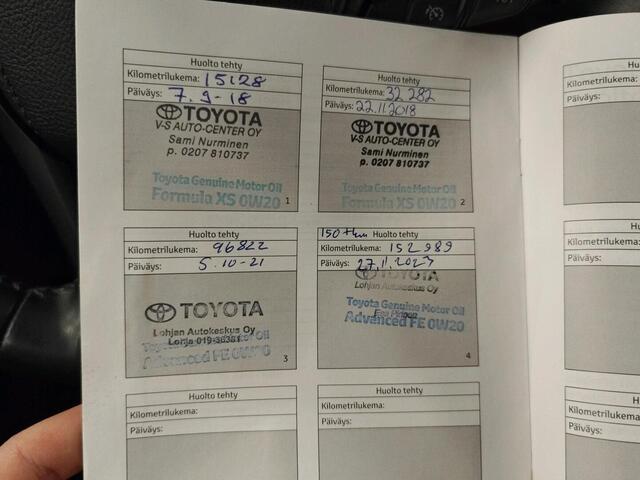 Huolto tehty
Kilometrilukema: 15128
Päiväys: 7.9-18
TOYOTA
V-S AUTO-CENTER OY
Sami Nurminen
p. 0207 810737
Toyota Genuine Motor Oil
Formula XS 0W20
1
Huolto tehty
Kilometrilukema: 32 282
Päiväys: 22.11.2018
TOYOTA
V-S AUTO-CENTER OY
Sami Nurminen
p. 0207 810737
Toyota Genuine Motor Oil
Formula XS 0W20
2
Huolto tehty
Kilometrilukema: 96822
Päiväys: 5.10-21
TOYOTA
Lohjan Autokeskus Oy
Lohja 019-36381
Toyota Genuine Motor Oil
Advanced FE 0W20
3
150 tkm Huolto tehty
Kilometrilukema: 152 989
Päiväys: 27.11.2023
TOYOTA
Lohjan Autokeskus Oy
Toyota Genuine Motor Oil
Advanced FE 0W20
4
Huolto tehty
Kilometrilukema:
Päiväys:
Huolto tehty
Kilometrilukema:
Päiväys:
Kilometriluke
Päiväys:
Kilometriluk
Päiväys:
Kilometrilu
Päiväys: